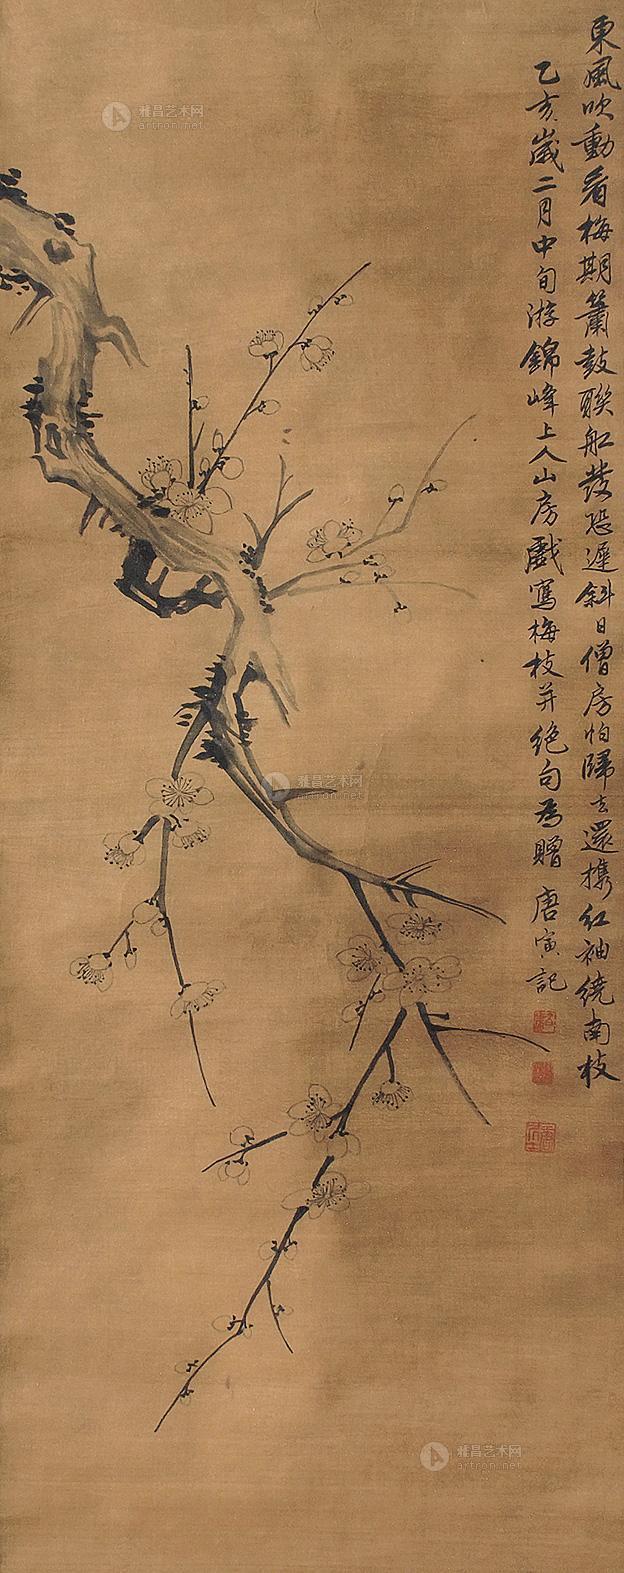 東風吹動看梅期簫鼓聯船發恐遲斜日僧房怕歸去還携紅袖繞南枝
乙亥歲二月中旬游錦峰上人山房戲寫梅枝并絕句為贈 唐寅記
雅昌艺术网
artron.net
雅昌艺术网
artron.net
雅昌艺术网
artron.net